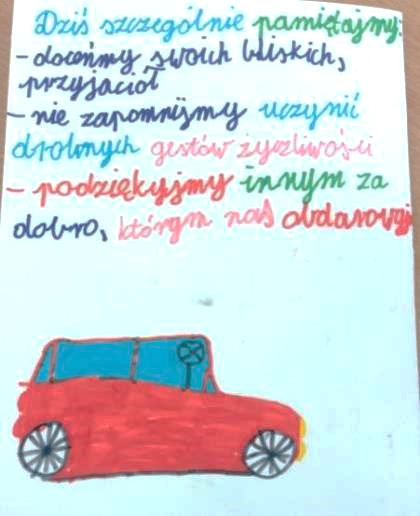 Dziś szczególnie pamiętajmy:
- doceńmy swoich bliskich,
przyjaciół
- nie zapomnijmy uczynić
drobnych gestów życzliwości
- podziękujmy innym za
dobro, którym nas obdarowuj